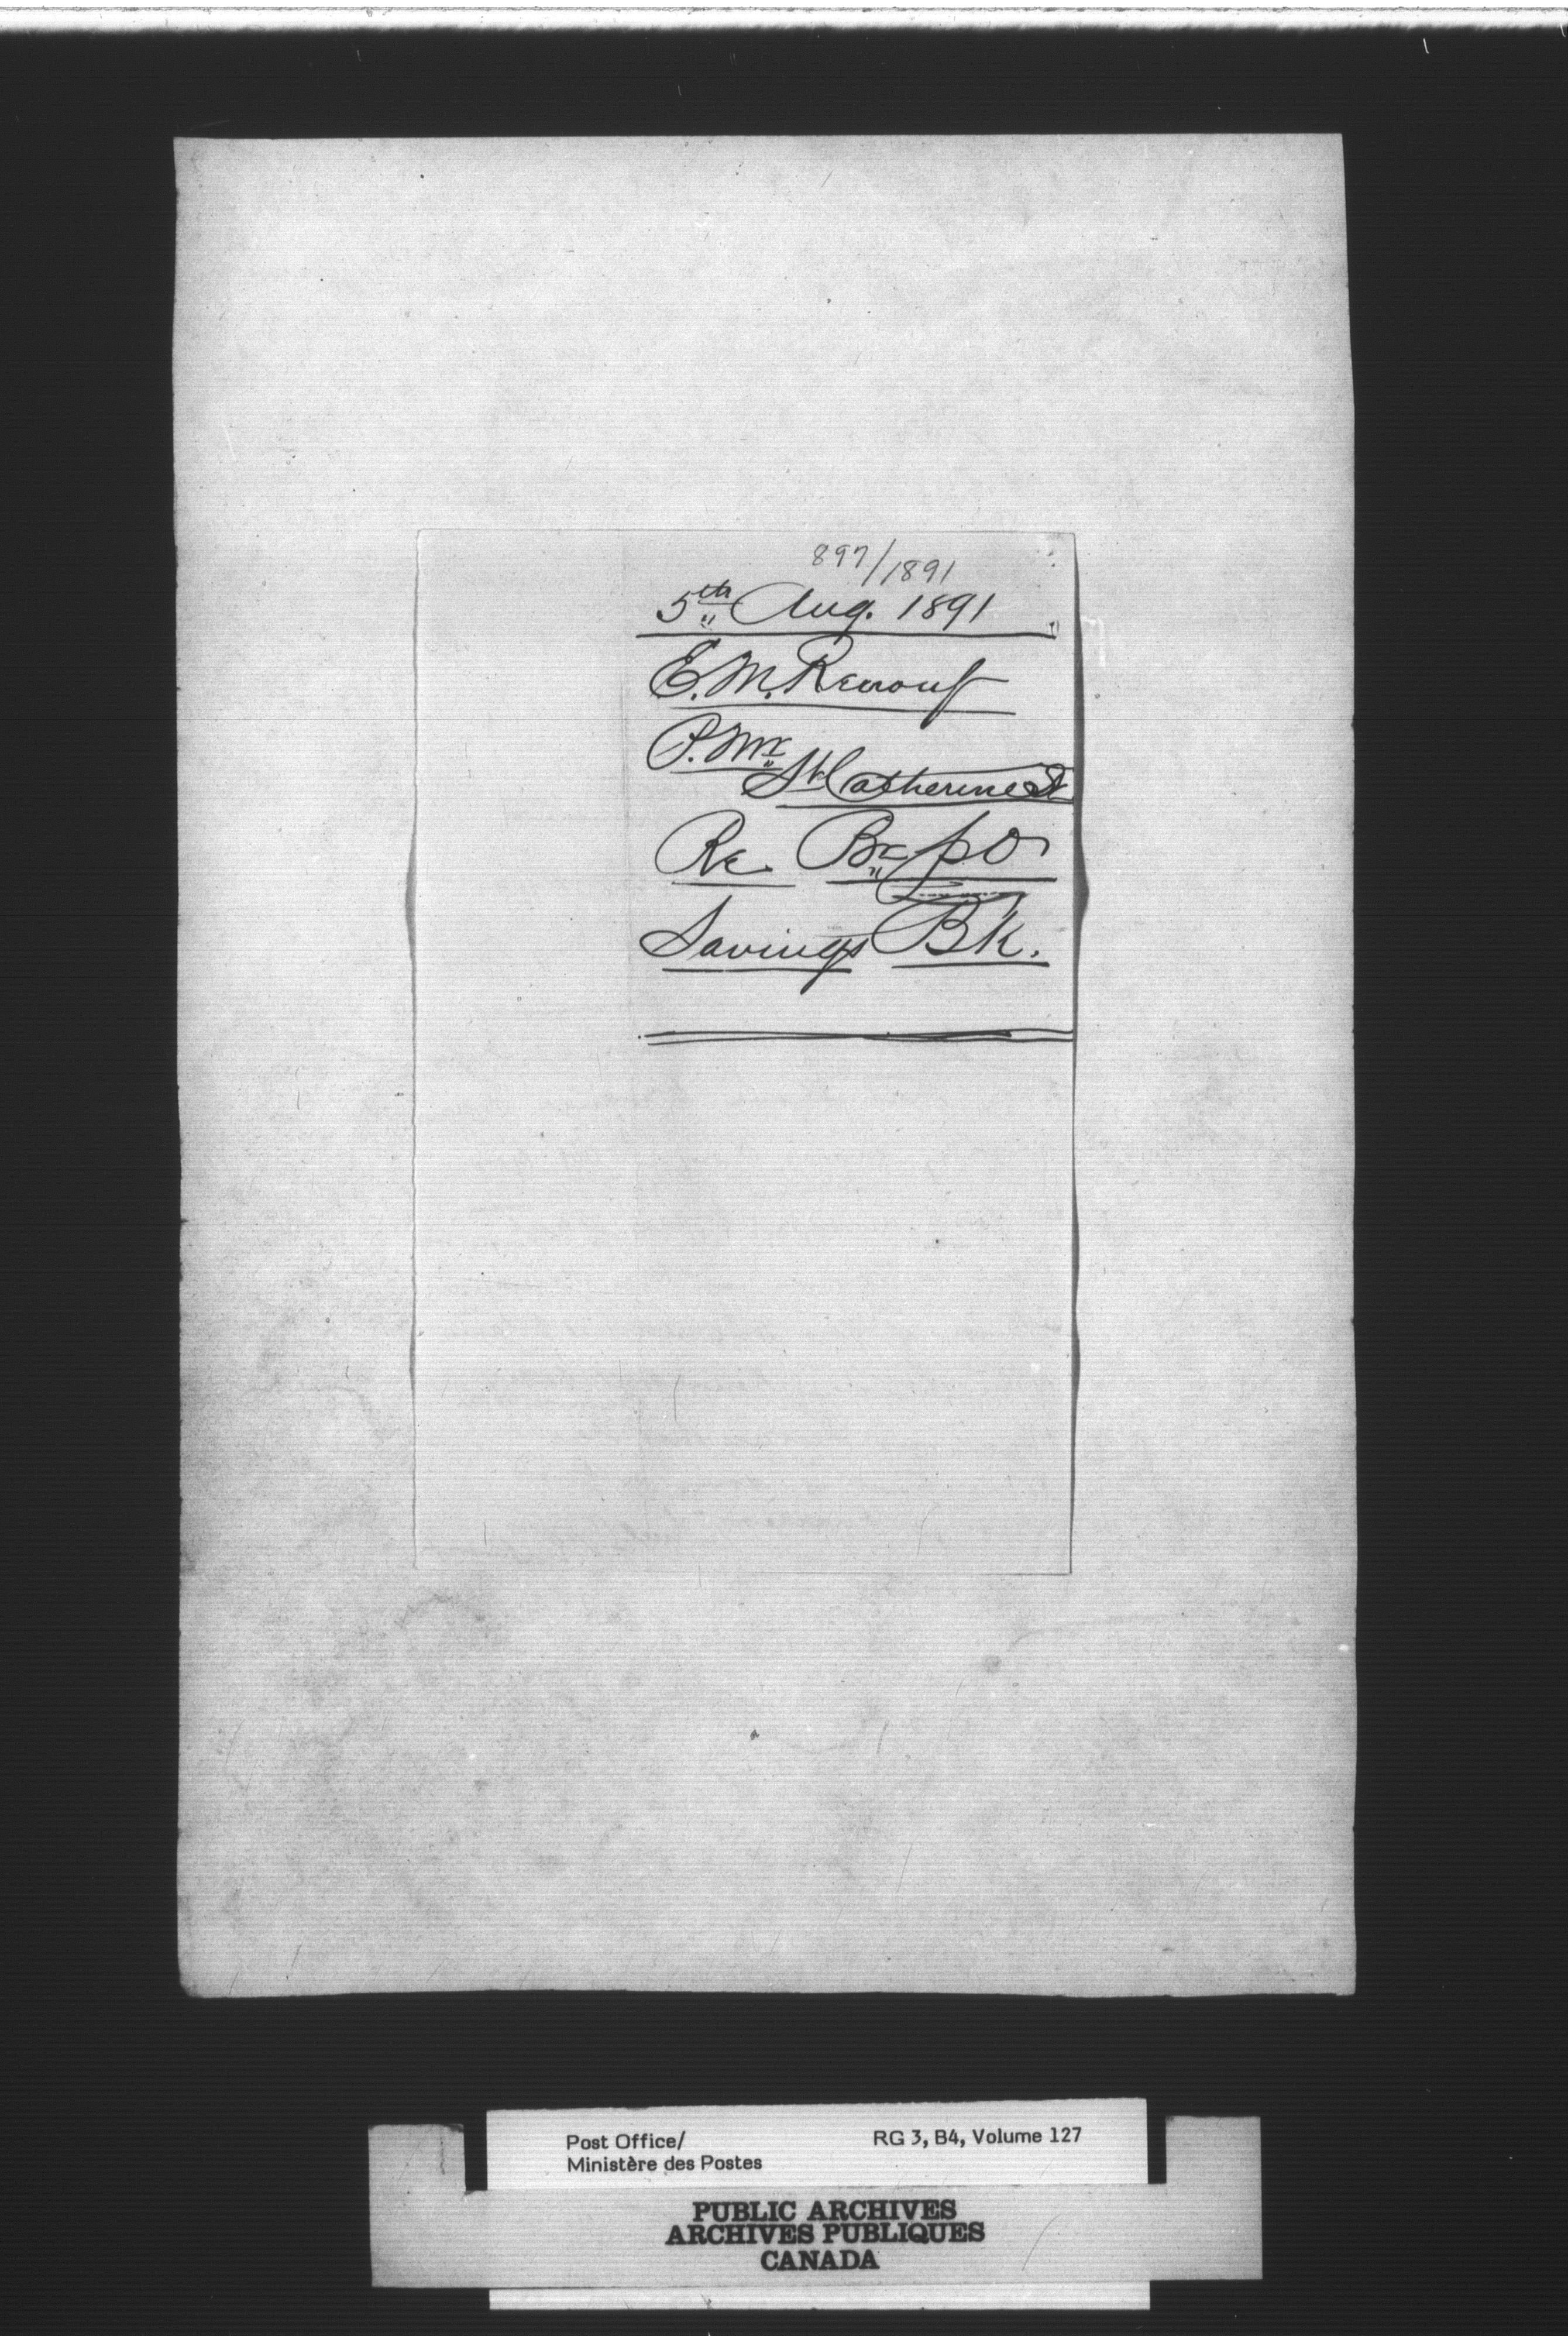 897/1891
5th Aug. 1891
E. M. Renouf
P. Mr
St Catherine St
Re Br p O
Savings Bk.
Post Office/
Ministère des Postes
RG 3, B4, Volume 127
PUBLIC ARCHIVES
ARCHIVES PUBLIQUES
CANADA